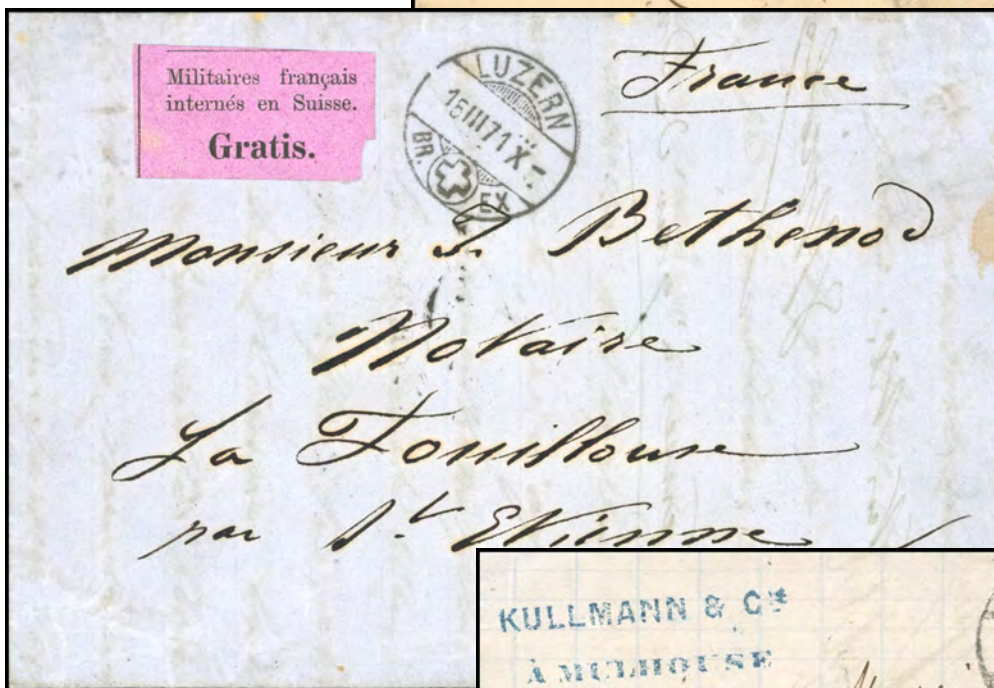 Militaires français
internés en Suisse.
Gratis.
LUZERN
15 III 71 X
BR. EX
France
Monsieur J. Bethenod
Notaire
La Fouillouse
par St. Etienne
KULLMANN & Cie
À MULHOUSE